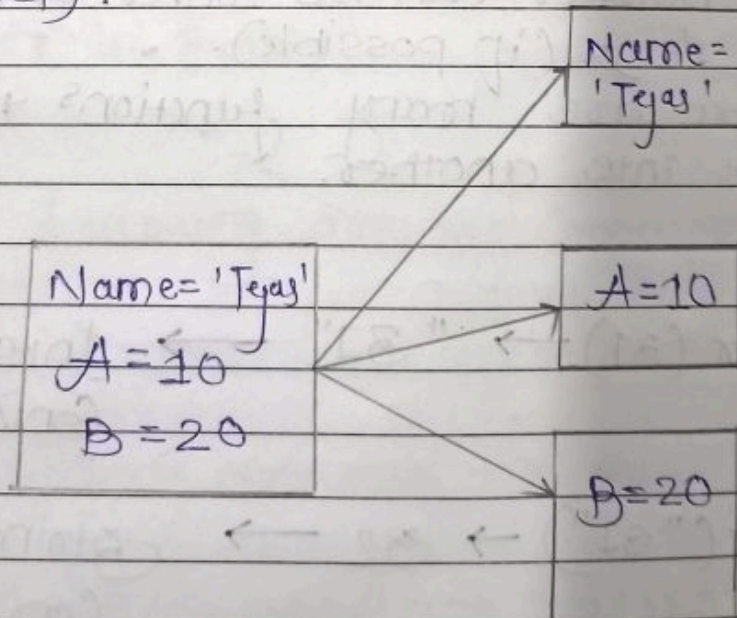 Name=
'Tejas'
Name= 'Tejas'
A = 10
B = 20
A=10
B=20